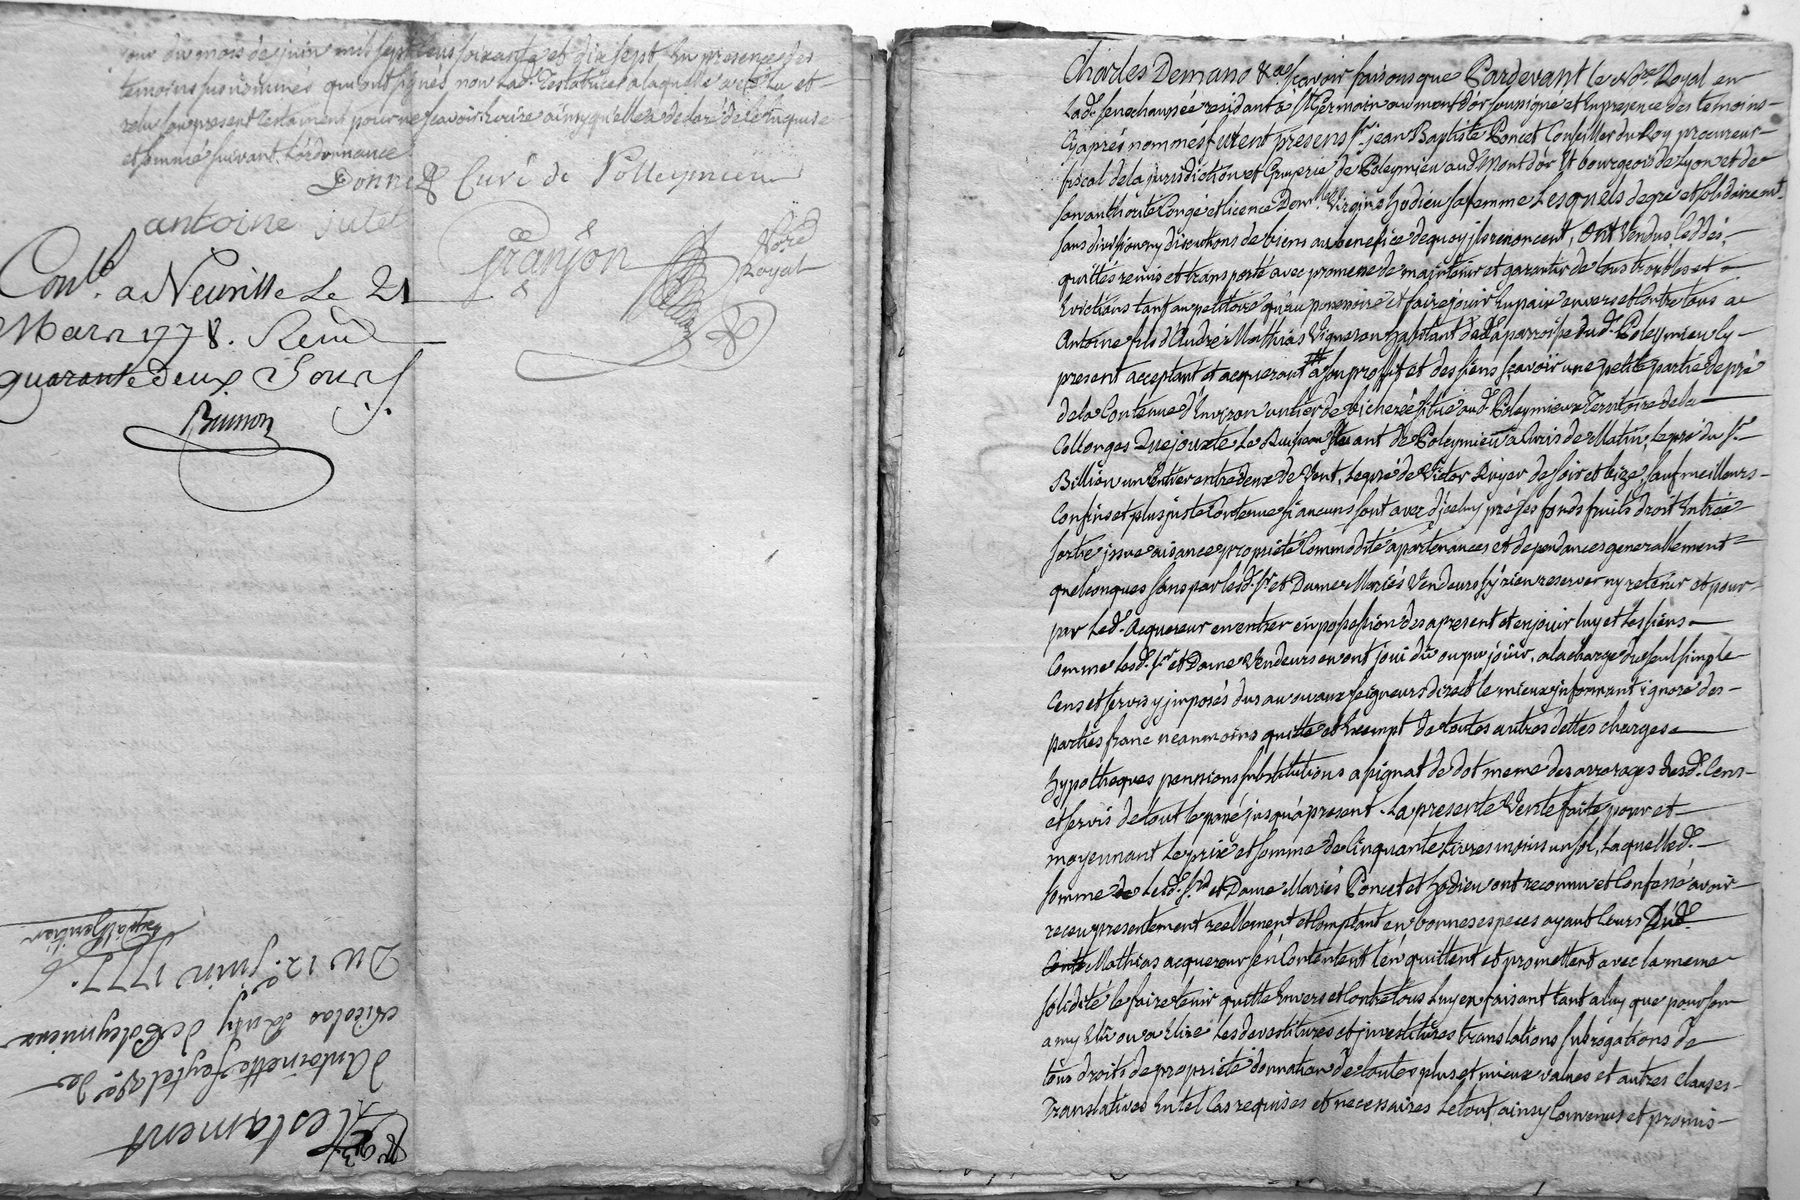 jour du mois de juin mil sept cens soixante et dix sept En presence des
temoins susnommés qui ont signés non Lad. Testatrice a laquelle a été Lu et
relu son present Testament pour ne sçavoir Ecrire ainsy qu'elle a declaré de ce Enquise
et sommé suivant L'ordonnance
Donnet Curé de Polleymieu
antoine jutet
franjon Notre
Royal
Conlé a Neuville Le 21
Mars 1778. Reçu
quarante Deux Sous
Brunon
Testament
d'Antoinette Ve. de
Nicolas de Poleymieux
Du 12. Juin 1777.
Charles Demans &ca sçavoir faisons que Pardevant le Notre Royal en
Lad. senechaussée residant a St. Germain au mont d'or soussigné et En presence des temoins
Cy après nommés furent presens Sr. jean Baptiste Poncet Conseiller du Roy procureur
fiscal de la jurisdiction et Gruyerie de Poleymieu au d. Mont d'or Et bourgeois de Lyon et de
son authorité Congé et licence Demlle Virginie hodieu sa femme Lesquels de gré et solidairemt.
sans division ny discutions de biens au benefice de quoy ils renoncent, Ont Vendus, Ceddés,
quittés remis et transporté avec promesse de maintenir et garentir de tous troubles et
Evictions tant au petitoire qu'au possessoire et faire jouir En paix envers et Contre tous a
Antoine fils d'André Mathias Vigneron habitant de La parroisse dud. Poleymieu Cy
present acceptant et acquerant a son proffit et des siens sçavoir une petite partie de pré
de la Contenue d'Environ un tier de bicherée situé aud. Poleymieux Territoire de la
Collonges Que jouxte Le Ruisseau fluant de Poleymieu a Curis de Matin, Le pré du Sr.
Billion un sentier entre deux de Vent, Le pré de Victor Royer de soir et bize, sauf meilleurs
Confins et plus juste Contenue si aucuns sont avec d'iceluy pré ses fonds fruits droit Entrée
sortie issue aisance proprieté Commodité apartenances et dependances generallement
quelconques sans par lesd. Sr. et Dame Mariés Vendeurs s'y rien reserver ny retenir et pour
par Led. Acquereur en entrer en possession des a present et en jouir luy et Les siens
Comme Lesd. Sr. et Dame Vendeurs en ont joui dû ou pu joüir, a la charge du seul simple
Cens et servis y imposés dus au ou aux seigneurs direct le mieux informant ignoré des
parties franc neanmoins quitte et Exempt de toutes autres dettes charges
hypotheques pensions substitutions assignat de dot meme des arrerages desd. Cens
et servis de tout le passé jusqu'a present. La presente Vente faite pour et
moyennant Le prix et somme de Cinquante Livres moins un sol, Laquelle d.
somme Lesd. Sr. et Dame Mariés Poncet et hodieu ont reconnu et Confessé avoir
receu presentement reellement et Comptant en bonnes especes ayant Cours Dud.
Mathias acquereur s'en Contentent l'en quittent et promettent avec la meme
solidité le faire tenir quitte Envers et Contre tous Luy en faisant tant a luy que pour son
amy Elû ou a Elire Les devestitures et investitures translations subrogations de
tous droits de proprieté donnation de toutes plus et mieux values et autres clauses
Translatives En tel Cas requises et necessaires Le tout ainsy Convenus et promis